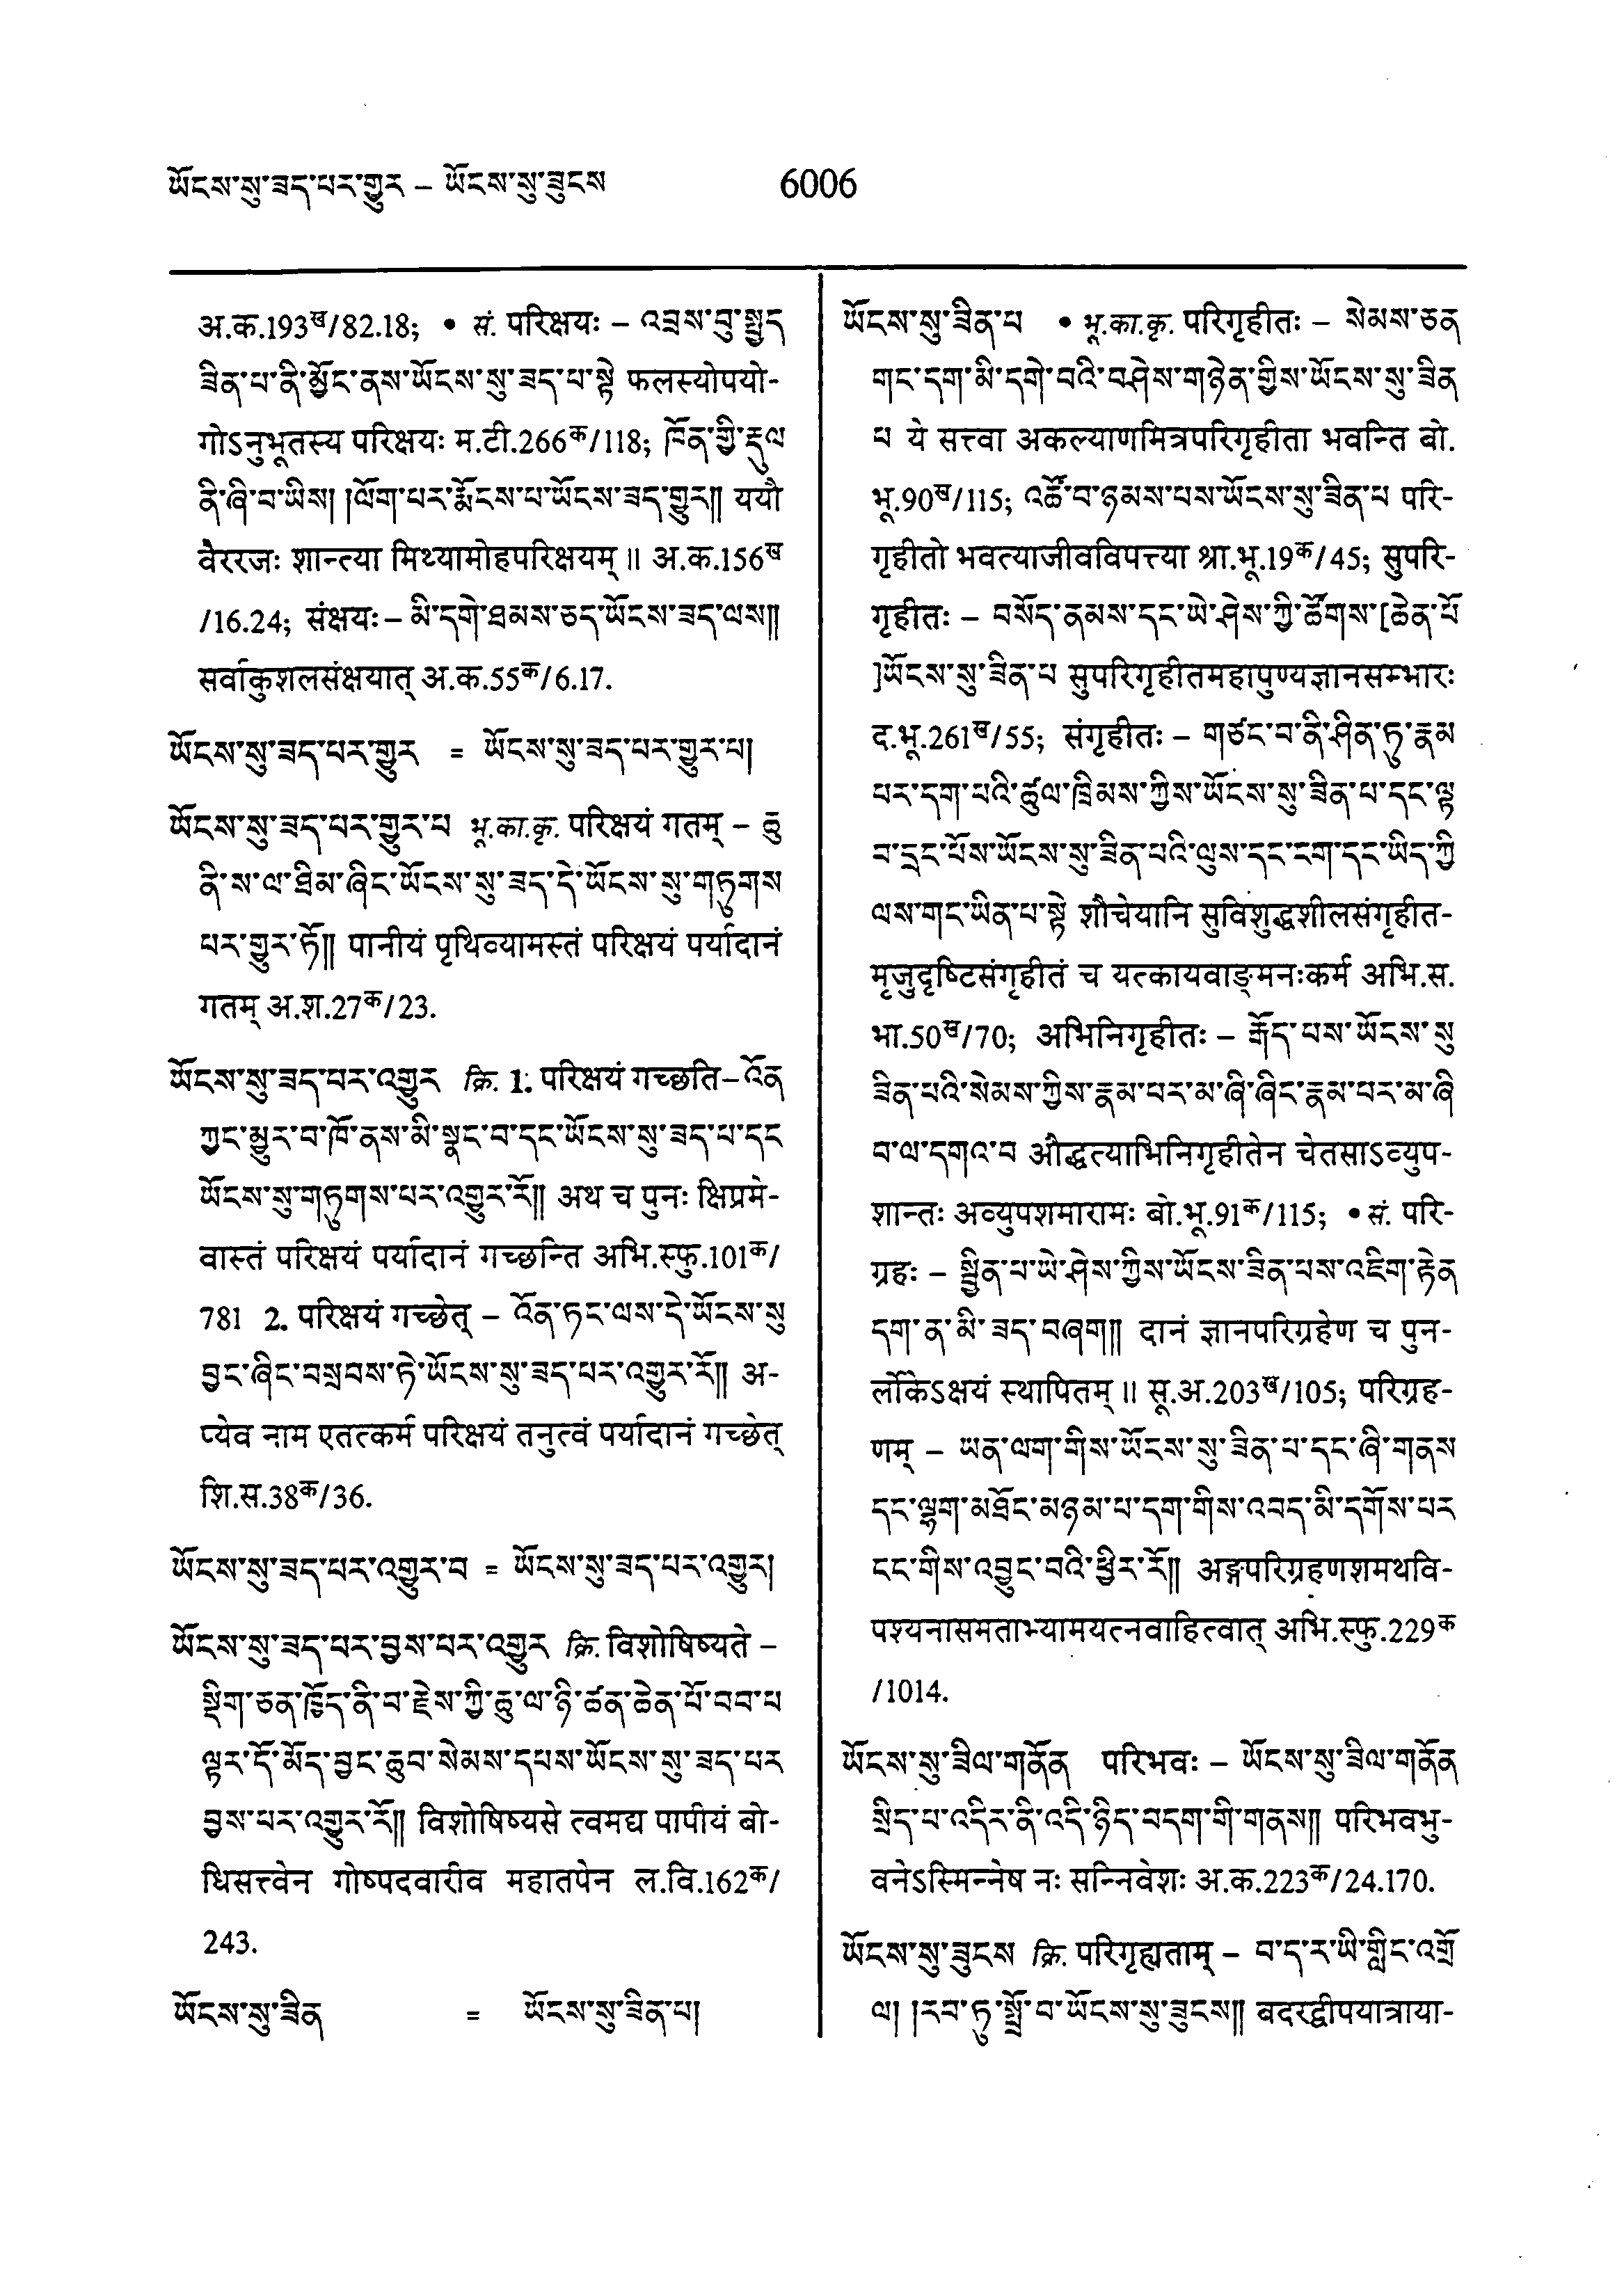 ཡོངས་སུ་ཟད་པར་གྱུར – ཡོངས་སུ་ཟུངས 6006
अ.क.193ख/82.18; • सं. परिक्षयः – འབྲས་བུ་སྤྱད
ཟིན་པ་ནི་མྱོང་ནས་ཡོངས་སུ་ཟད་པ་སྟེ फलस्योपयो-
गोऽनुभूतस्य परिक्षयः म.टी.266क/118; ཁོན་གྱི་རྡུལ
ནི་ཞི་བ་ཡིས། །ལོག་པར་རྨོངས་པ་ཡོངས་ཟད་གྱུར།། ययौ
वैररजः शान्त्या मिथ्यामोहपरिक्षयम् ॥ अ.क.156ख
/16.24; संक्षयः – མི་དགེ་ཐམས་ཅད་ཡོངས་ཟད་ལས།།
सर्वाकुशलसंक्षयात् अ.क.55क/6.17.
ཡོངས་སུ་ཟད་པར་གྱུར = ཡོངས་སུ་ཟད་པར་གྱུར་པ།
ཡོངས་སུ་ཟད་པར་གྱུར་པ भू.का.कृ. परिक्षयं गतम् – ཆུ
ནི་ས་ལ་ཐིམ་ཞིང་ཡོངས་སུ་ཟད་དེ་ཡོངས་སུ་གཏུགས
པར་གྱུར་ཏོ།། पानीयं पृथिव्यामस्तं परिक्षयं पर्यादानं
गतम् अ.श.27क/23.
ཡོངས་སུ་ཟད་པར་འགྱུར क्रि. 1. परिक्षयं गच्छति – འོན
ཀྱང་མྱུར་བ་ཁོ་ནས་མི་སྣང་བ་དང་ཡོངས་སུ་ཟད་པ་དང
ཡོངས་སུ་གཏུགས་པར་འགྱུར་རོ།། अथ च पुनः क्षिप्रमे-
वास्तं परिक्षयं पर्यादानं गच्छन्ति अभि.स्फु.101क/
781 2. परिक्षयं गच्छेत् – འོན་ཏང་ལས་དེ་ཡོངས་སུ
བྱང་ཞིང་བསྲབས་ཏེ་ཡོངས་སུ་ཟད་པར་འགྱུར་རོ།། अ-
प्येव नाम एतत्कर्म परिक्षयं तनुत्वं पर्यादानं गच्छेत्
शि.स.38क/36.
ཡོངས་སུ་ཟད་པར་འགྱུར་བ = ཡོངས་སུ་ཟད་པར་འགྱུར།
ཡོངས་སུ་ཟད་པར་བྱས་པར་འགྱུར क्रि. विशोषिष्यते –
སྡིག་ཅན་ཁྱོད་ནི་བ་རྗེས་ཀྱི་ཆུ་ལ་ཉི་ཚན་ཆེན་པོ་བབ་པ
ལྟར་དོ་མོད་བྱང་ཆུབ་སེམས་དཔས་ཡོངས་སུ་ཟད་པར
བྱས་པར་འགྱུར་རོ།། विशोषिष्यसे त्वमद्य पापीयं बो-
धिसत्त्वेन गोष्पदवारीव महातपेन ल.वि.162क/
243.
ཡོངས་སུ་ཟིན = ཡོངས་སུ་ཟིན་པ།
ཡོངས་སུ་ཟིན་པ • भू.का.कृ. परिगृहीतः – སེམས་ཅན
གང་དག་མི་དགེ་བའི་བཤེས་གཉེན་གྱིས་ཡོངས་སུ་ཟིན
པ ये सत्त्वा अकल्याणमित्रपरिगृहीता भवन्ति बो.
भू.90ख/115; འཚོ་བ་ཉམས་པས་ཡོངས་སུ་ཟིན་པ परि-
गृहीतो भवत्याजीवविपत्त्या श्रा.भू.19क/45; सुपरि-
गृहीतः – བསོད་ནམས་དང་ཡེ་ཤེས་ཀྱི་ཚོགས་[ཆེན་པོ
]ཡོངས་སུ་ཟིན་པ सुपरिगृहीतमहापुण्यज्ञानसम्भारः
द.भू.261ख/55; संगृहीतः – གཙང་བ་ནི་ཤིན་ཏུ་རྣམ
པར་དག་པའི་ཚུལ་ཁྲིམས་ཀྱིས་ཡོངས་སུ་ཟིན་པ་དང་ལྟ
བ་དྲང་པོས་ཡོངས་སུ་ཟིན་པའི་ལུས་དང་ངག་དང་ཡིད་ཀྱི
ལས་གང་ཡིན་པ་སྟེ शौचेयानि सुविशुद्धशीलसंगृहीत-
मृजुदृष्टिसंगृहीतं च यत्कायवाङ्मनःकर्म अभि.स.
भा.50ख/70; अभिनिगृहीतः – རྒོད་པས་ཡོངས་སུ
ཟིན་པའི་སེམས་ཀྱིས་རྣམ་པར་མ་ཞི་ཞིང་རྣམ་པར་མ་ཞི
བ་ལ་དགའ་བ औद्धत्याभिनिगृहीतेन चेतसाऽव्युप-
शान्तः अव्युपशमारामः बो.भू.91क/115; • सं. परि-
ग्रहः – སྦྱིན་པ་ཡེ་ཤེས་ཀྱིས་ཡོངས་ཟིན་པས་འཇིག་རྟེན
དག་ན་མི་ཟད་བཞག།། दानं ज्ञानपरिग्रहेण च पुन-
र्लोकेऽक्षयं स्थापितम् ॥ सू.अ.203ख/105; परिग्रह-
णम् – ཡན་ལག་གིས་ཡོངས་སུ་ཟིན་པ་དང་ཞི་གནས
དང་ལྷག་མཐོང་མཉམ་པ་དག་གིས་འབད་མི་དགོས་པར
ངང་གིས་འབྱུང་བའི་ཕྱིར་རོ།། अङ्गपरिग्रहणशमथवि-
पश्यनासमताभ्यामयत्नवाहित्वात् अभि.स्फु.229क
/1014.
ཡོངས་སུ་ཟིལ་གནོན परिभवः – ཡོངས་སུ་ཟིལ་གནོན
སྲིད་པ་འདིར་ནི་འདི་ཉིད་བདག་གི་གནས།། परिभवभु-
वनेऽस्मिन्नेष नः सन्निवेशः अ.क.223क/24.170.
ཡོངས་སུ་ཟུངས क्रि. परिगृह्यताम् – བ་ད་ར་ཡི་གླིང་འགྲོ
ལ། །རབ་ཏུ་སྤྲོ་བ་ཡོངས་སུ་ཟུངས།། बदरद्वीपयात्राया-